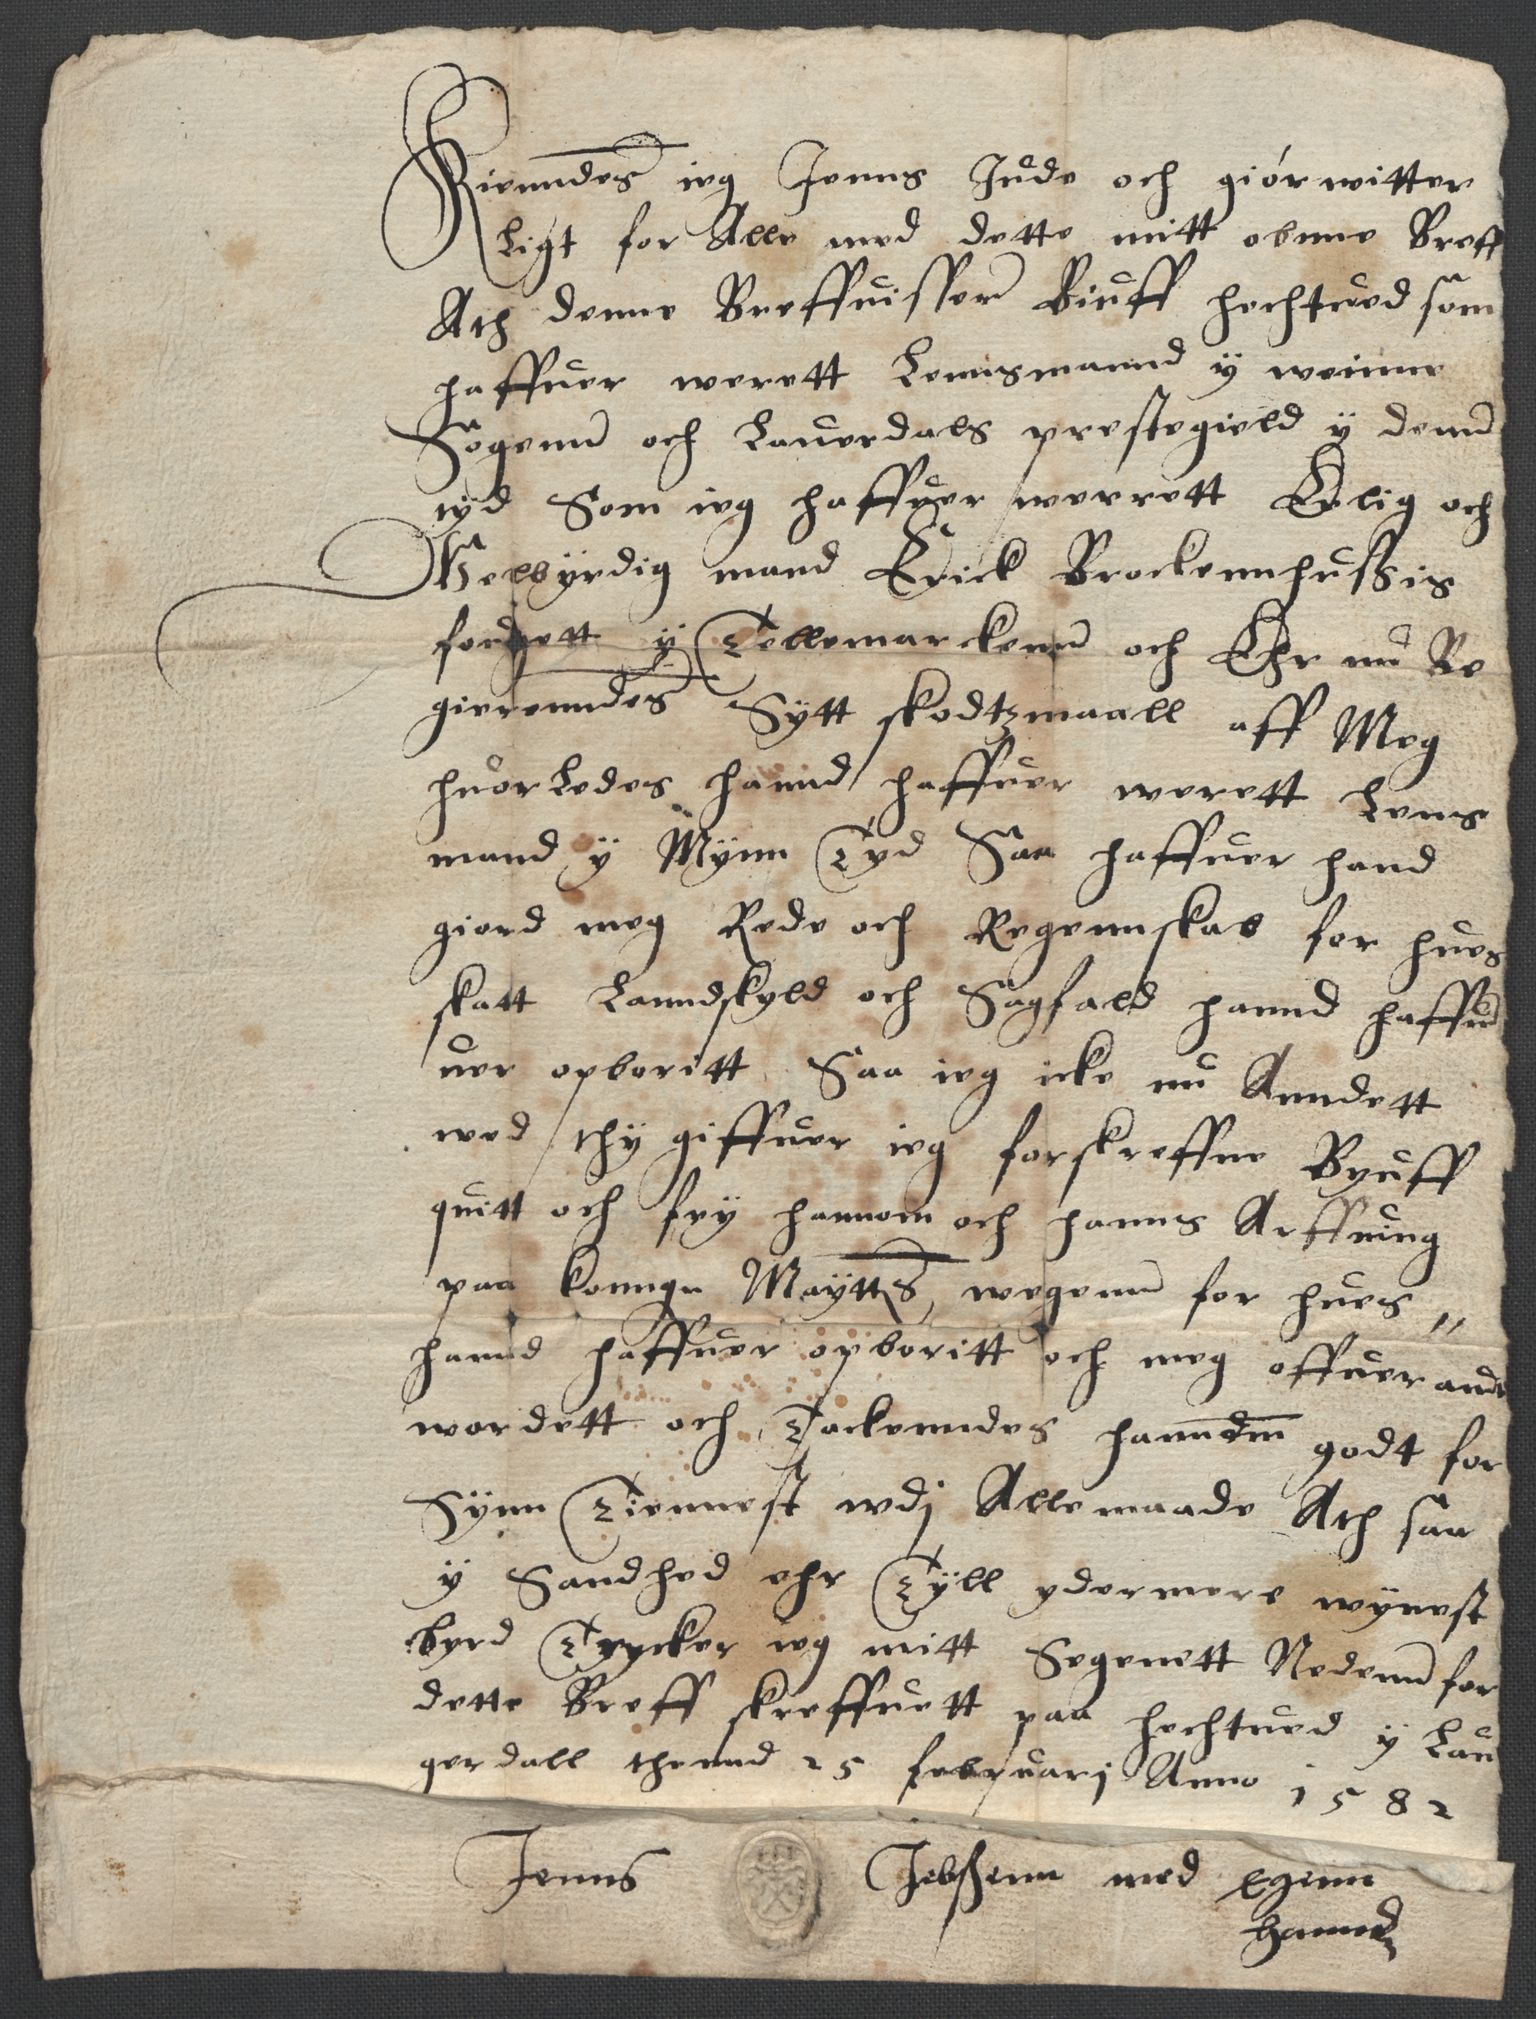 Kienndes ieg Jenns Jude och giór witter
ligt for Alle med dette mitt obnne Breff
Ath denne Breffuisser Biuff hechtued som
haffuer werett Lennsmannd y weinne
Sogenn och Lauerdals prestegield y denn
tyd Som ieg haffuer werrett Erlig och
Welbÿrdig mand Erick Brockennhussis
fougett ÿ Tellemarckenn och Ehr nu Be
gierenndes Sÿtt skodtzmaall aff Meg
huorledes hannd haffuer werett Lens
mand ÿ Mÿnn Tyd Saa haffuer hand
giord meg Rede och Regennskab for hues
skatt Lanndskyld och Sagfald hannd haffuer
uer opboritt Saa ieg icke nu Anndett
wed thÿ giffuer ieg forskreffne Byuff
quitt och frÿ hannom och hanns Arffuing
paa konngn Maÿtts wegenn for hues "
hannd haffuer opboritt och meg offuer andt
wordett och Tackenndes hanndm godt for
Sÿnn Tiennest wdj Alle maade Ath saa
ÿ Sandhed ehr Tÿll ydermere wÿnest
byrd Trycker ieg mitt Segenett Nedenn for
dette Breff skreffuett paa hechtued ÿ Lau
gerdall thennd 25 februarj Anno 1582
Jenns Jebssenn med Egenn
hannd